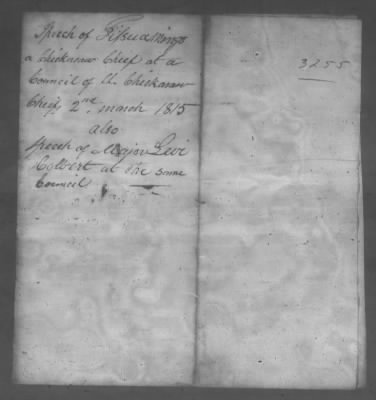 Speech of Tishuamingo
a Chickasaw Chief at a
Council of the Chickasaw
Chiefs 2nd. march 1815
also
speech of Major Levi
Colbert at the same
Council
3255